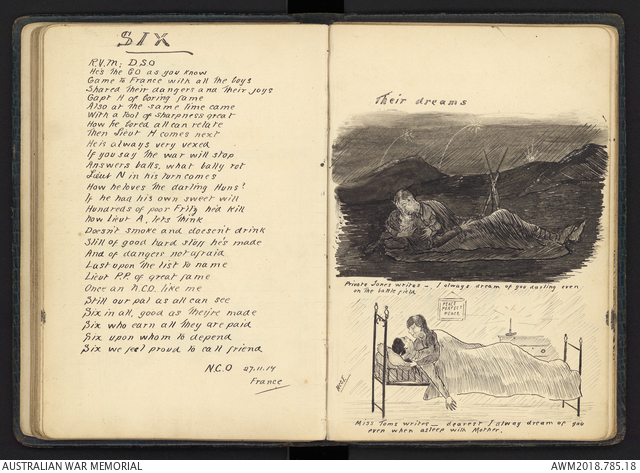 SIX
R.V.M; D.S.O
He's the CO as you know
Came to France with all the boys
Shared their dangers and their joys
Capt H of boring fame
Also at the same time came
With a tool of sharpness great
How he bored all can relate
Then Lieut M comes next
He is always very vexed
If you say the war will stop
Answers balls, what bally rot
Lieut N in his turn comes
How he loves the darling Huns?
If he has his own sweet will
Hundreds of poor Fritz he'd kill
Now Lieut A, lets think
Doesn't smoke and doesen't drink
Still of good hard stuff he's made
And of dangers not afraid
Last upon the list to name
Lieut P.P. of great fame
Once an N.C.O. like me
Still our pal as all can see
Six in all, good as they're made
Six who earn all they are paid
Six upon whom to depend
Six we feel proud to call friend
N.C.O 27.11.17
France
Their dreams
Private Jones writes - I always dream of you darling even
on the battle field
PEACE
PERFECT
PEACE
Miss Toms writes - dearest I alway dream of you
even when asleep with Mother.
AUSTRALIAN WAR MEMORIAL
AWM2018.785.18